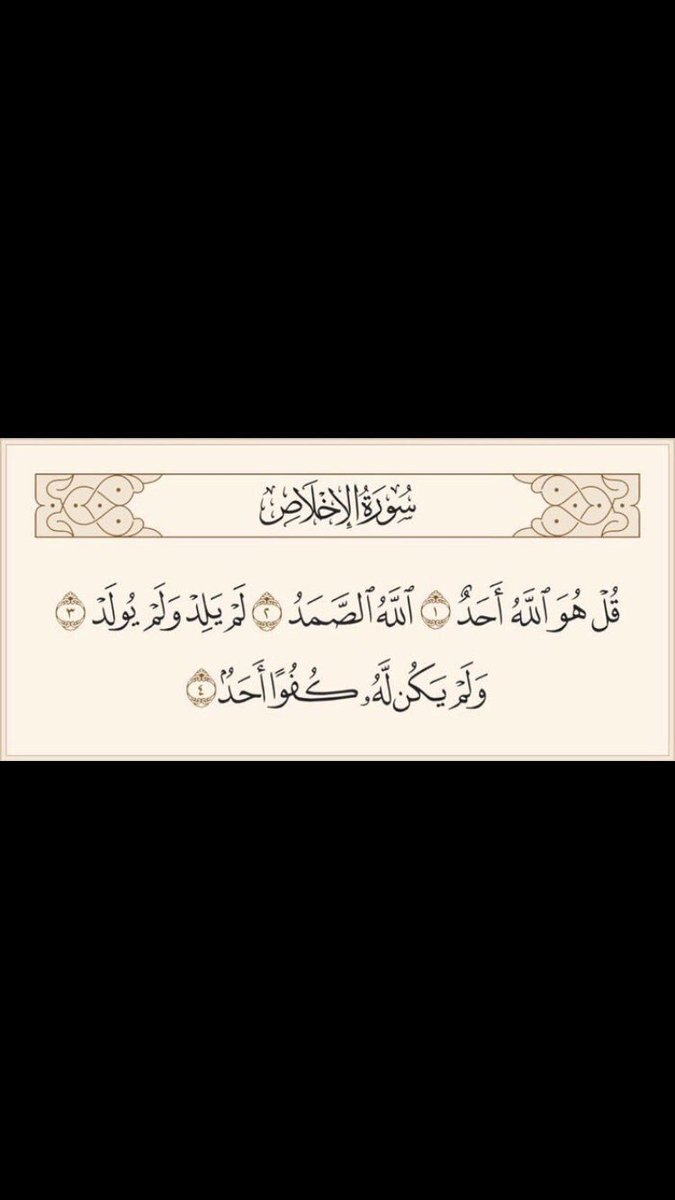 سُورَةُ الإِخْلَاصِ
قُلْ هُوَ ٱللَّهُ أَحَدٌ ١ ٱللَّهُ ٱلصَّمَدُ ٢ لَمْ يَلِدْ وَلَمْ يُولَدْ ٣
وَلَمْ يَكُن لَّهُۥ كُفُوًا أَحَدٌۢ ٤